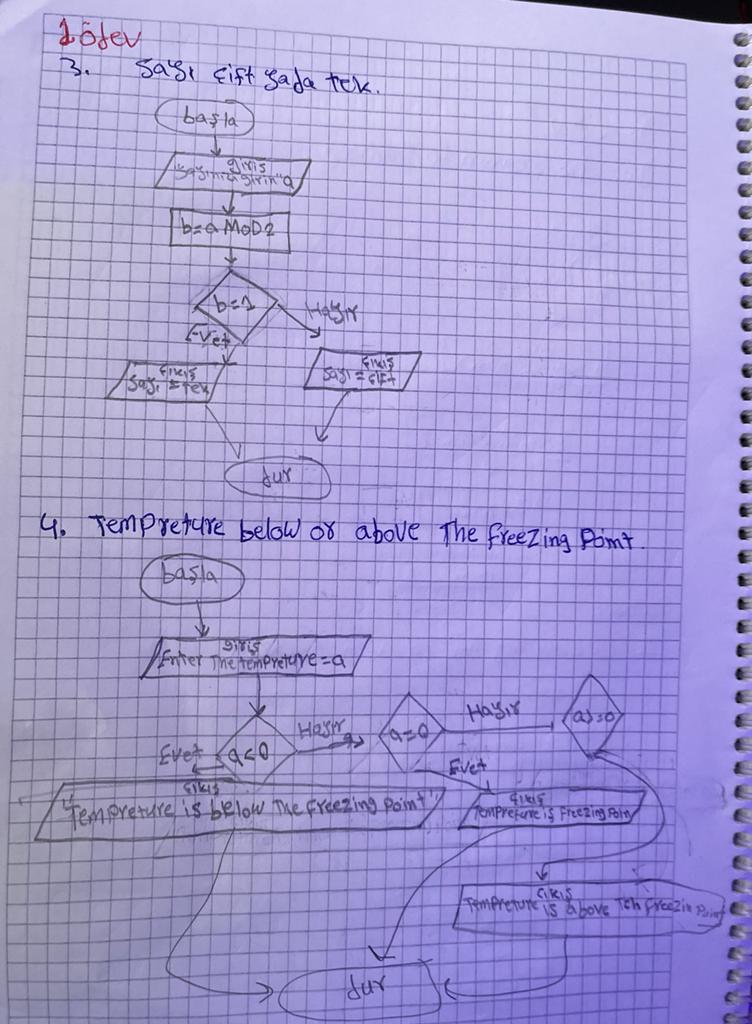 1 ödev
3. Sayı çift yada tek.
başla
giriş
"Sayınızı girin" a
b=a MOD2
b=1
Hayır
Evet
çıkış
Sayı = tek
çıkış
Sayı = çift
dur
4. Tempreture below or above The freezing Point.
başla
giriş
Enter The tempreture=a
a<0
Hayır
a=0
Hayır
a>=0
Evet
Evet
çıkış
"Tempreture is below The freezing Point"
çıkış
Tempreture is freezing Poin
çıkış
Tempreture is above Teh freezin Point
dur